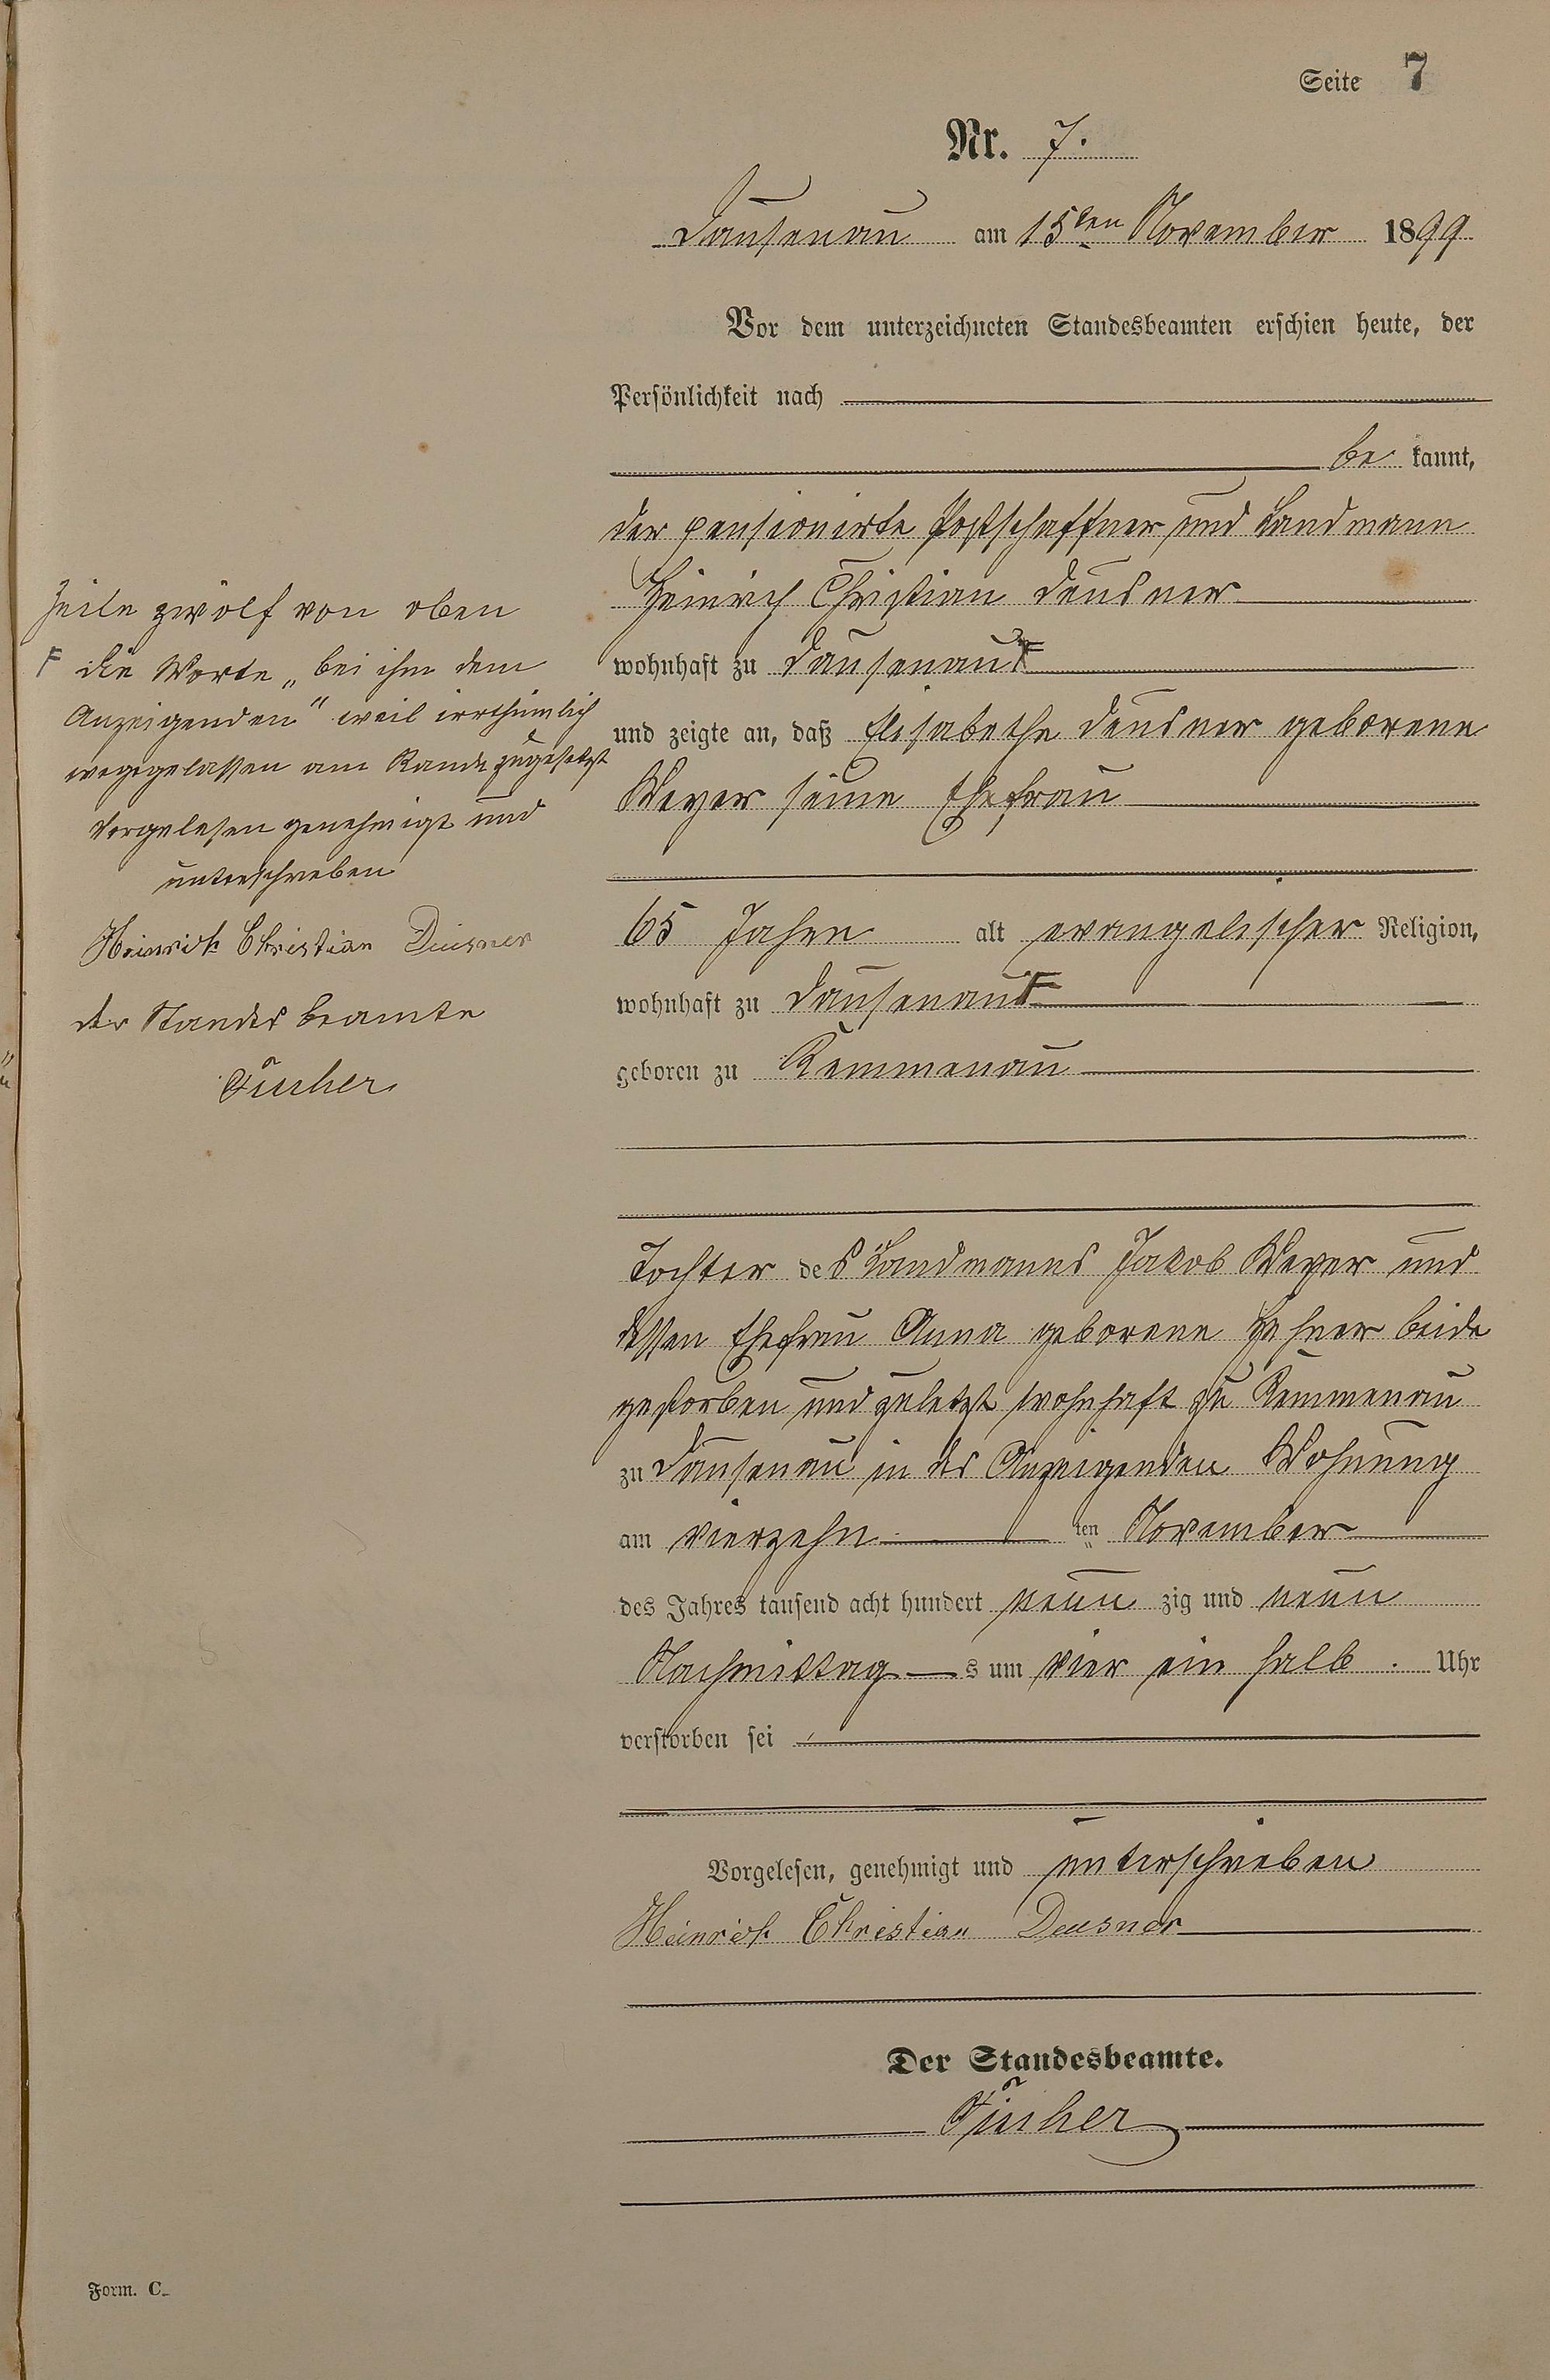 Seite 7
Nr. 7.
Dausenau am 15ten November 1899
Vor dem unterzeichneten Standesbeamten erschien heute, der
Persönlichkeit nach
be kannt,
der pensionirte Postschaffner und Landmann
Heinrich Christian Deusner
wohnhaft zu Dausenau
und zeigte an, daß Elisabethe Deusner geborene
Meyer seine Ehefrau
65 Jahre alt evangelischer Religion,
wohnhaft zu Dausenau F
geboren zu Kemmenau
Tochter des Landmanns Jakob Meyer und
dessen Ehefrau Anna geborene beide
gestorben und zuletzt wohnhaft zu Kemmenau
zu Dausenau in des Anzeigenden Wohnung
am vierzehn ten November
des Jahres tausend acht hundert neun zig und neun
Nachmittag s um vier ein halb Uhr
verstorben sei
Vorgelesen, genehmigt und unterschrieben
Heinrich Christian Deusner
Der Standesbeamte.
Zeile zwölf von oben
F die Worte „bei ihm dem
Anzeigenden" weil irrthümlich
weggelassen am Rande zugesetzt
Vorgelesen genehmigt und
unterschrieben
Heinrich Christian Deusner
der Standesbeamte
Form. C.